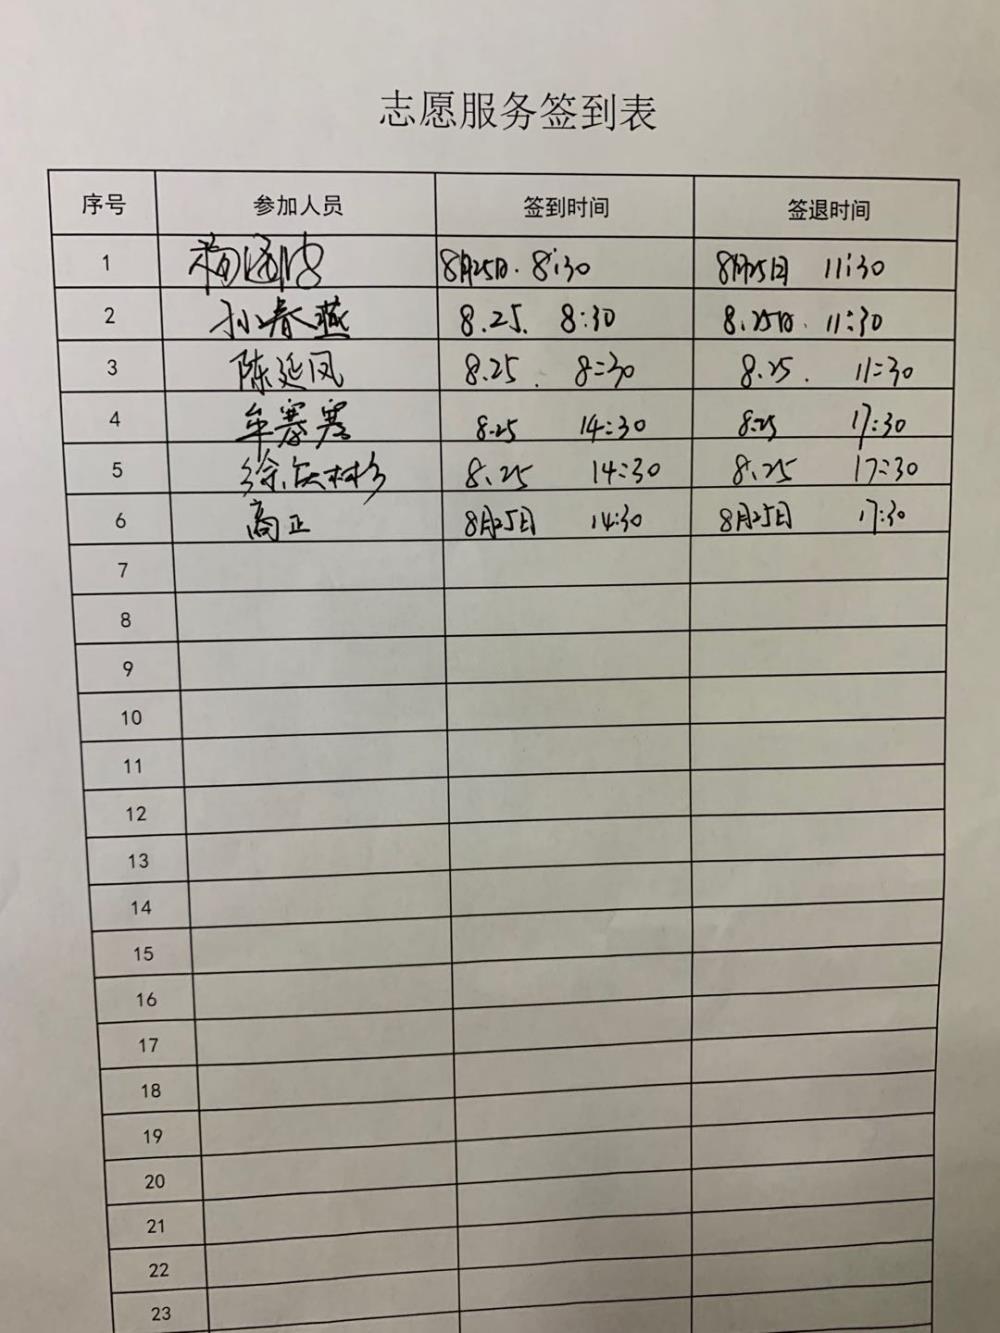 志愿服务签到表
序号 参加人员 签到时间 签退时间
1 8月25日. 8:30 8月25日 11:30
2 孙春燕 8.25. 8:30 8.25日. 11:30
3 陈延凤 8.25. 8:30 8.25. 11:30
4 牟骞骞 8.25 14:30 8.25 17:30
5 8.25 14:30 8.25 17:30
6 高正 8月25日 14:30 8月25日 17:30
7
8
9
10
11
12
13
14
15
16
17
18
19
20
21
22
23